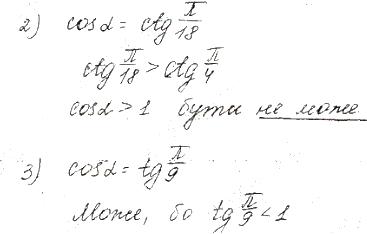 2) cos α = ctg π/18
ctg π/18 > ctg π/4
cos α > 1 бути не може
3) cos α = tg π/9
Може, бо tg π/9 < 1